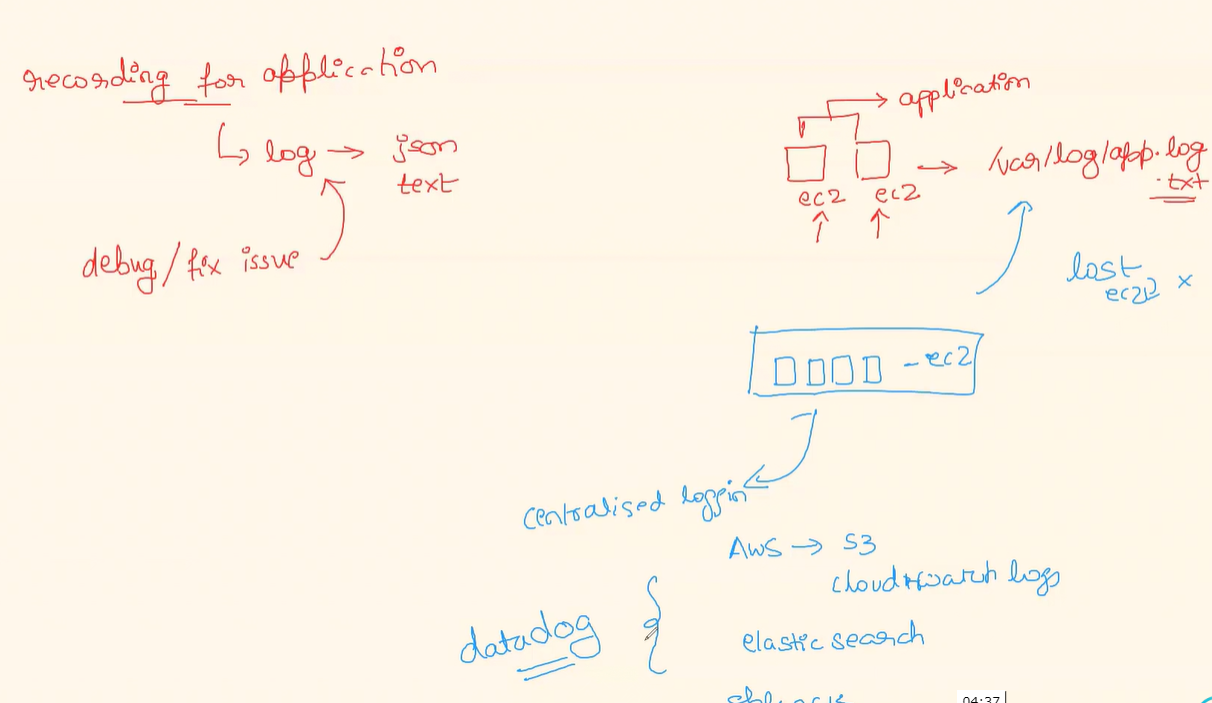 recording for application
log → json
text
debug/fix issue
application
ec2 ec2
→ /var/log/app.log
.txt
lost
ec2 x
- ec2
centralised loggin
AWS → S3
cloudwatch logs
datadog
elastic search
04:37